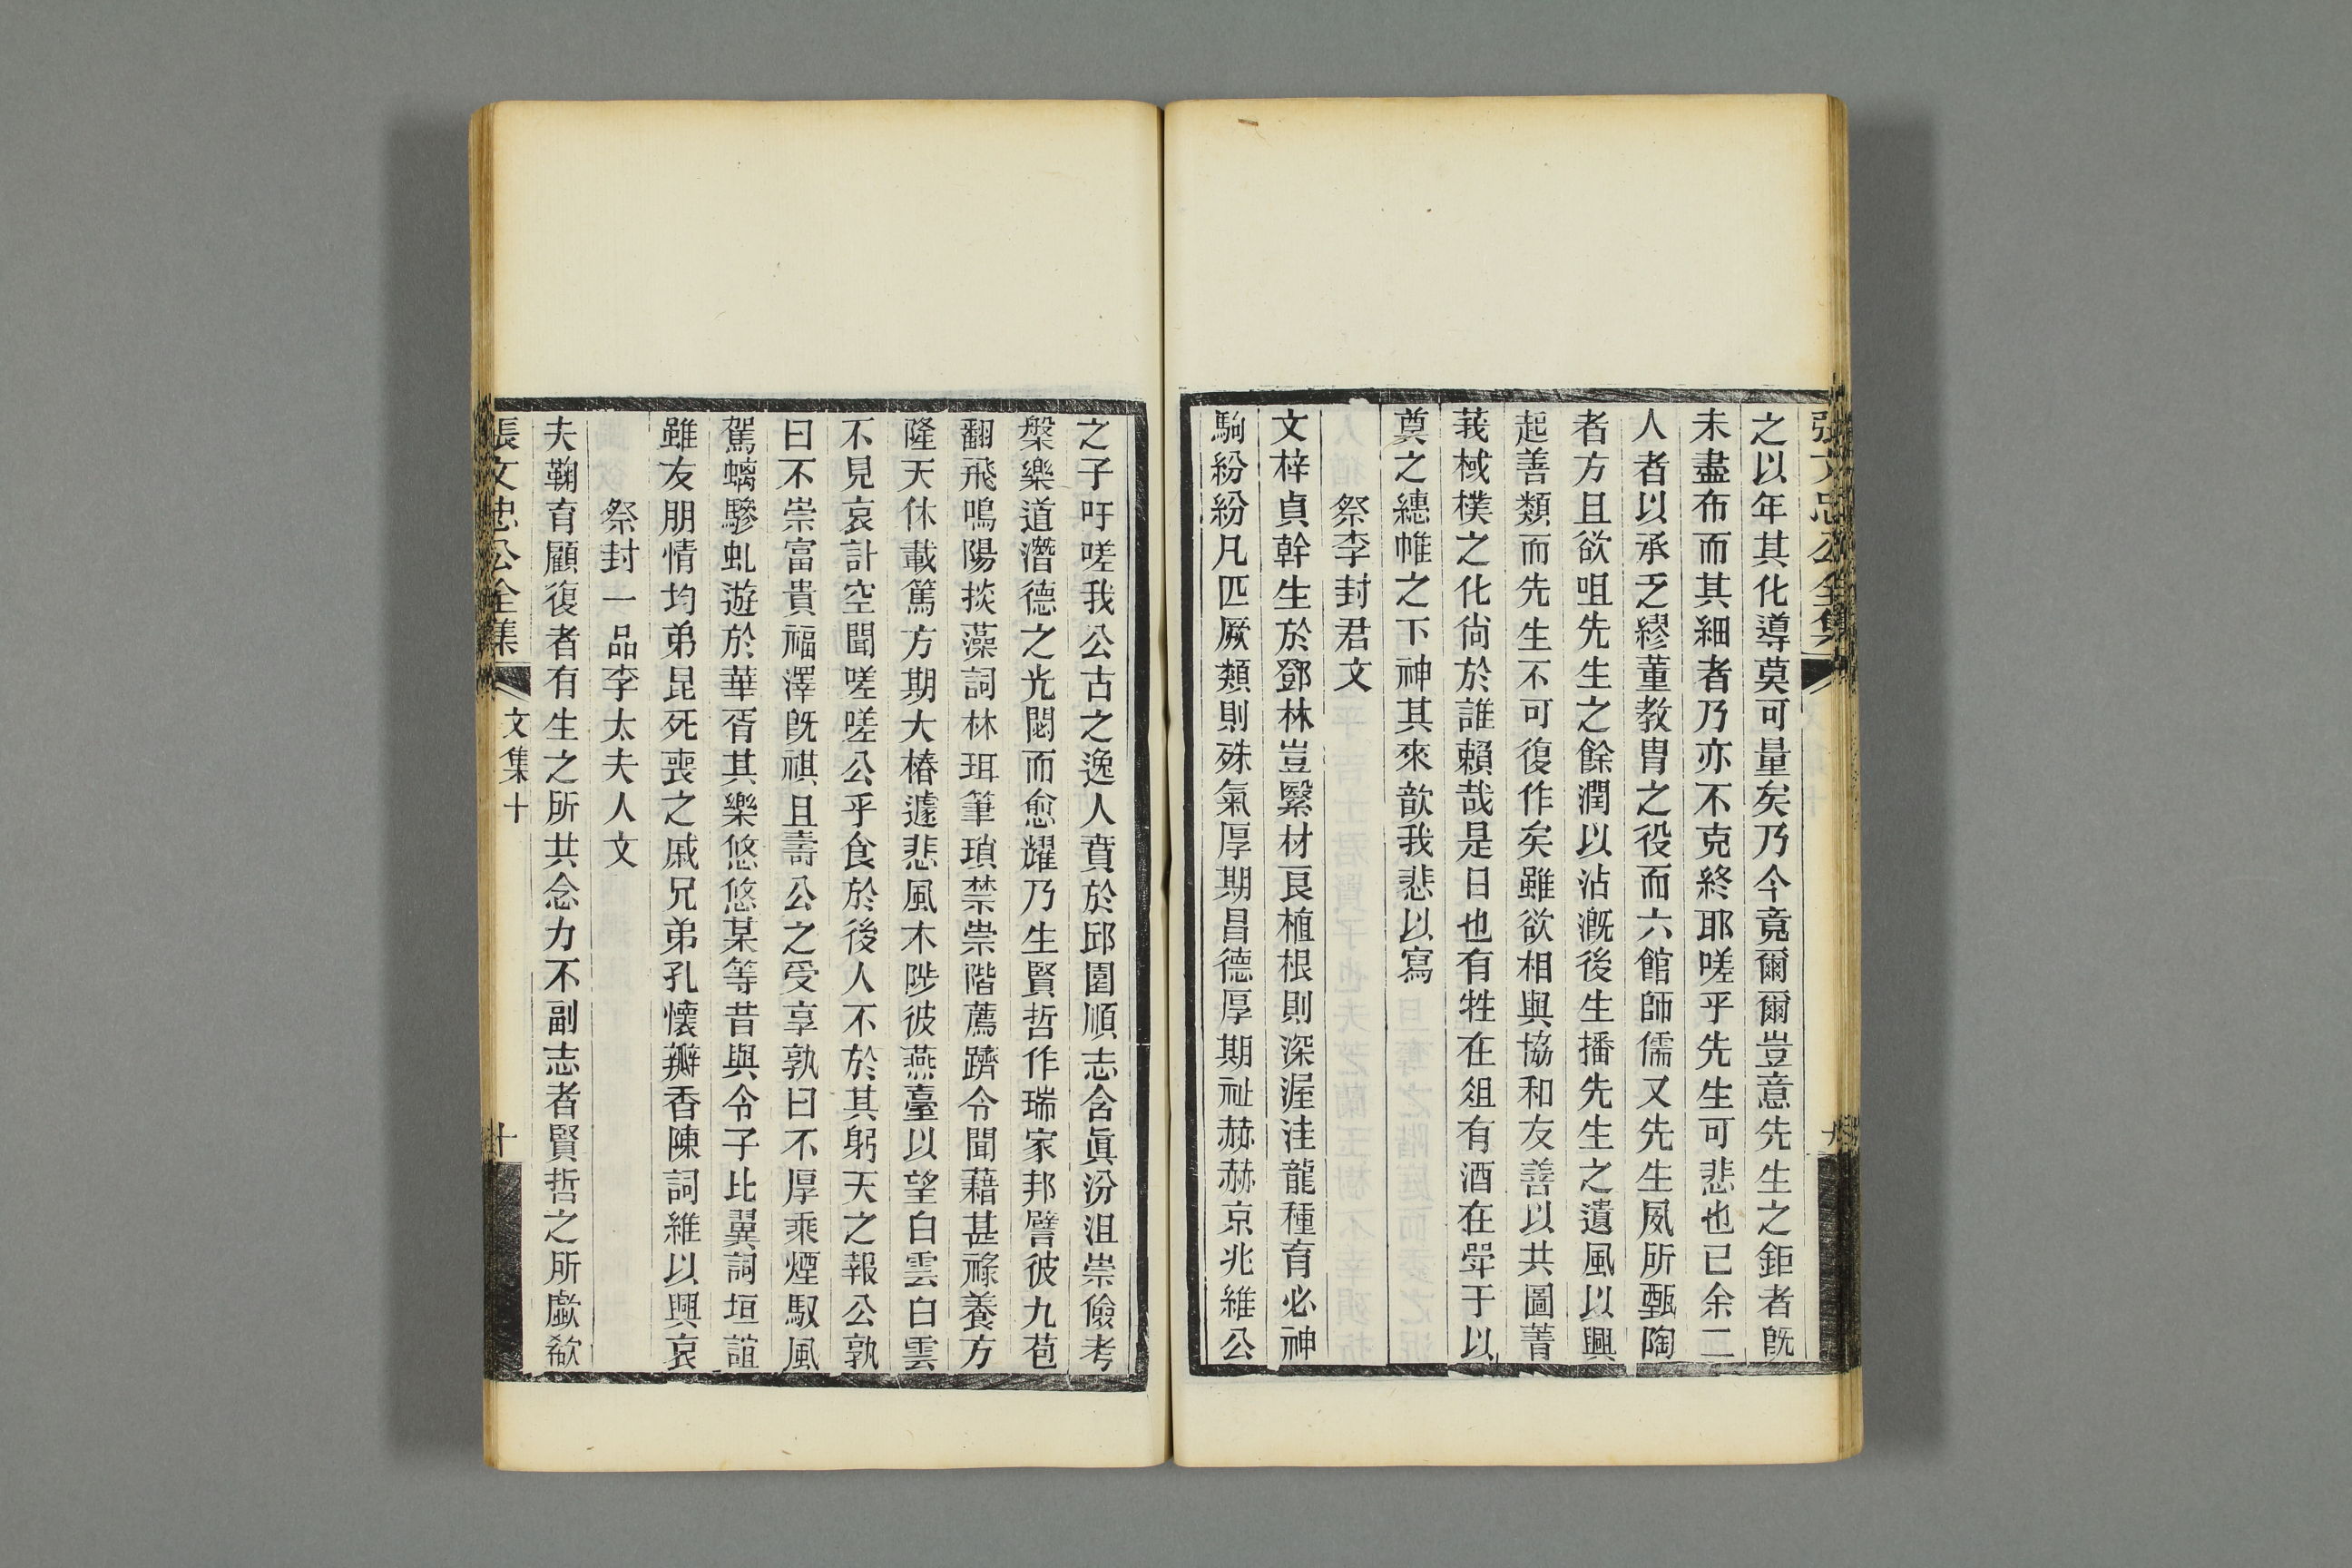 張文忠公全集
之以年其化導莫可量矣乃今竟爾爾豈意先生之鉅者旣
未盡布而其細者乃亦不克終耶嗟乎先生可悲也已余二
人者以承乏繆董教冑之役而六館師儒又先生夙所甄陶
者方且欲咀先生之餘潤以沾漑後生播先生之遺風以興
起善類而先生不可復作矣雖欲相與協和友善以共圖菁
莪棫樸之化尙於誰賴哉是日也有牲在俎有酒在斝于以
奠之繐帷之下神其來歆我悲以寫
祭李封君文
文梓貞幹生於鄧林豈緊材良植根則深渥洼龍種育必神
駒紛紛凡匹厥類則殊氣厚期昌德厚期祉赫赫京兆維公
之子吁嗟我公古之逸人賁於邱園順志含眞汾沮崇儉考
槃樂道潛德之光閟而愈耀乃生賢哲作瑞家邦譬彼九苞
翻飛鳴陽掞藻詞林珥筆瑣禁崇階薦躋令聞藉甚祿養方
隆天休載篤方期大椿遽悲風木陟彼燕臺以望白雲白雲
不見哀計空聞嗟嗟公乎食於後人不於其躬天之報公孰
曰不崇富貴福澤旣祺且壽公之受享孰曰不厚乘煙馭風
駕螭驂虬遊於華胥其樂悠悠某等昔與令子比翼詞垣誼
雖友朋情均弟昆死喪之戚兄弟孔懷瓣香陳詞維以興哀
祭封一品李太夫人文
夫鞠育顧復者有生之所共念力不副志者賢哲之所歔欷
張文忠公全集
文集十
十